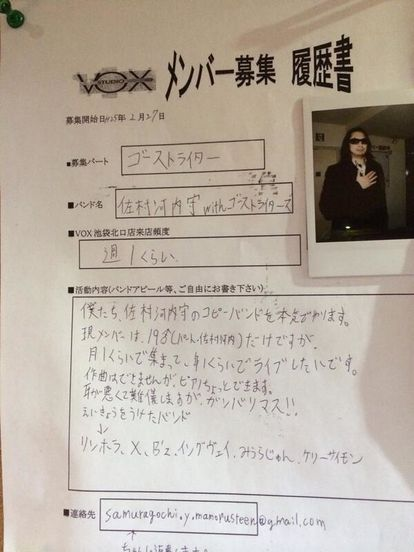 STUDIO VOX メンバー募集 履歴書
募集開始日H25年2月27日
■募集パート ゴーストライター
■バンド名 佐村河内守withゴーストライターズ
■VOX池袋北口店来店頻度
週1くらい。
■活動内容(バンドアピール等、ご自由にお書き下さい)
僕たち、佐村河内守のコピーバンドを本気でやります。
現メンバーは、19才(パート佐村河内)だけですが、
月1くらいで集まって、年1くらいでライブしたいです。
作曲はできませんが、ピアノちょっとできます。
耳が悪くて難儀しますが、ガンバリマス!!
えいきょうをうけたバンド
↓
リンホラ、X、B'z、イングヴェイ、みうらじゅん、ケリーサイモン
■連絡先 samuragochi.y.mamorusteen@gmail.com